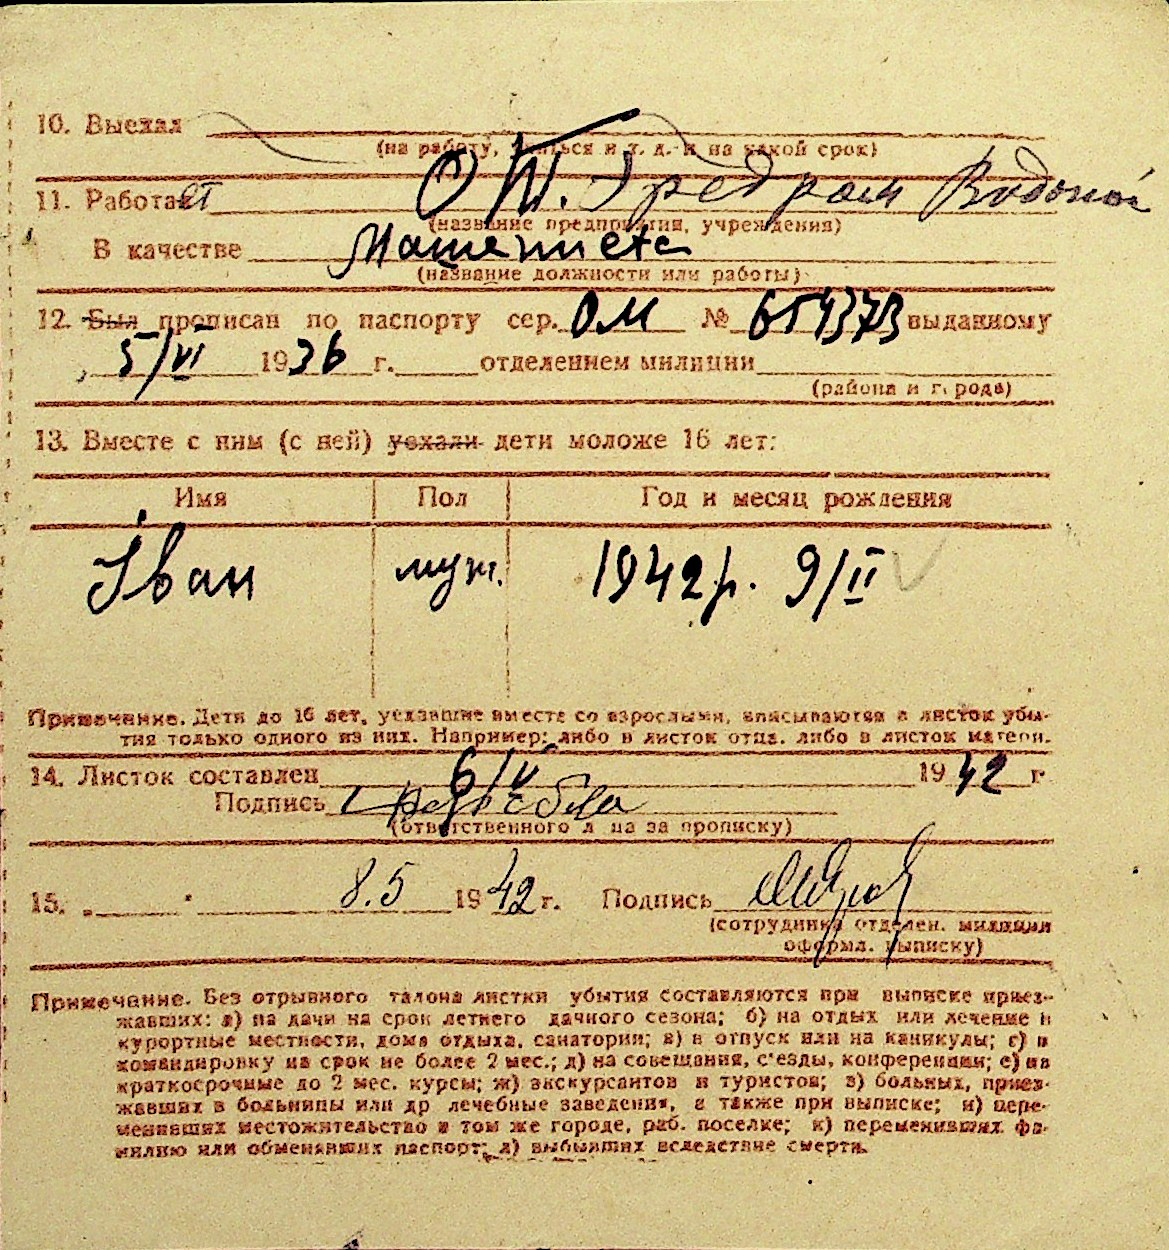 10. Выехал
(на работу, учиться и т. д. и на какой срок)
11. Работает
(название предприятия, учреждения)
В качестве Машениста
(название должности или работы)
12. Был прописан по паспорту сер. ОМ № выданному
5/VI 1936 г. отделением милиции
(района и города)
13. Вместе с ним (с ней) уехали дети моложе 16 лет:
Имя Пол Год и месяц рождения
Іван муж. 1942 р. 9/II
Примечание. Дети до 16 лет, уехавшие вместе со взрослыми, вписываются в листок убы-
тия только одного из них. Например: либо в листок отца, либо в листок матери.
14. Листок составлен 6/V 1942 г
Подпись
(ответственного лица за прописку)
15. 8.5 1942 г. Подпись
(сотрудника отделен. милиции
оформл. выписку)
Примечание. Без отрывного талона листки убытия составляются при выписке приез-
жавших: а) на дачи на срок летнего дачного сезона; б) на отдых или лечение в
курортные местности, дома отдыха, санатории; в) в отпуск или на каникулы; г) в
командировку на срок не более 2 мес.; д) на совещания, с'езды, конференции; е) на
краткосрочные до 2 мес. курсы; ж) экскурсантов и туристов; з) больных, приез-
жавших в больницы или др лечебные заведения, а также при выписке; и) пере-
менивших местожительство в том же городе, раб. поселке; к) переменивших фа-
милию или обменявших паспорт; л) выбывших вследствие смерти.